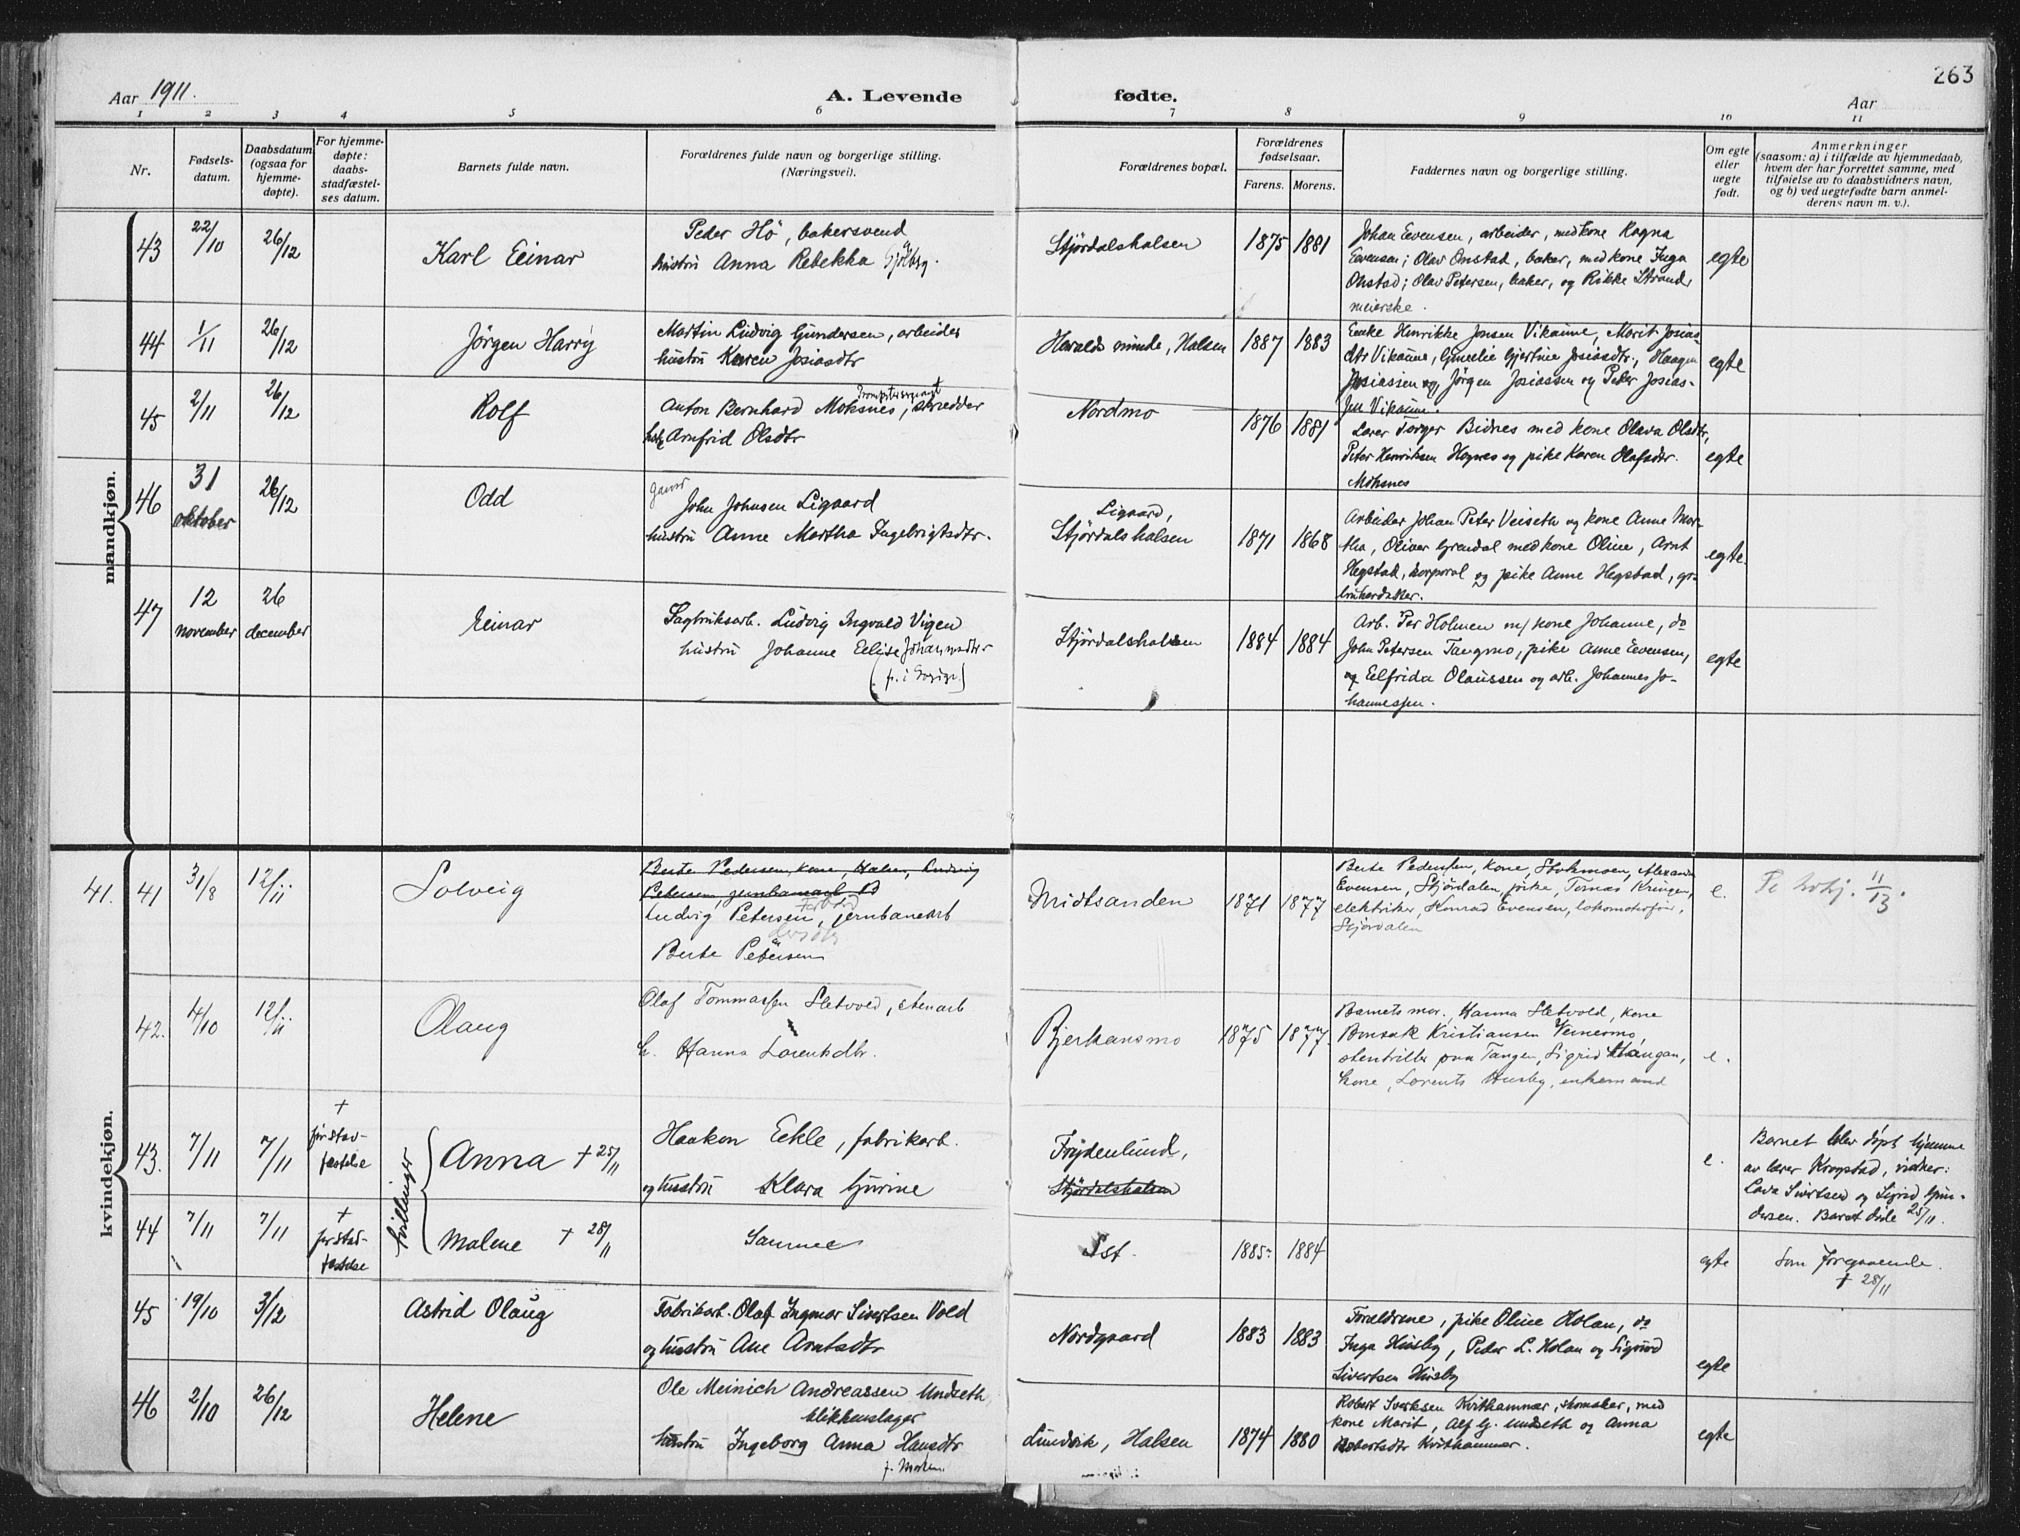 263
Aar 1911. A. Levende fødte. Aar
1 2 3 4 5 6 7 8 9 10 11
Nr.
Fødsels-
datum.
Daabsdatum
(ogsaa for
hjemme-
døpte).
For hjemme-
døpte:
daabs-
stadfæstel-
ses datum.
Barnets fulde navn.
Forældrenes fulde navn og borgerlige stilling.
(Næringsvei).
Forældrenes bopæl.
Forældrenes
fødselsaar.
Farens. Morens.
Faddernes navn og borgerlige stilling.
Om egte
eller
uegte
født.
Anmerkninger
(saasom: a) i tilfælde av hjemmedaab,
hvem der har forrettet samme, med
tilføielse av to daabsvidners navn,
og b) ved uegtefødte barn anmel-
derens navn m. v.).
mandkjøn.
43 22/10 26/12 Karl Einar
Peder Hö, bakersvend
hustru Anna Rebekka
Stjördalshalsen 1875 1881
Johan Evensen, arbeider, med kone Ragna
Evensen; Olav Onstad, baker, med kone Inga
Onstad; Olav Petersen, baker, og Rikke Strand,
meierske.
egte
44 1/11 26/12 Jörgen Harry
Martin Ludvig Gundersen, arbeider
hustru Karen Josiasdtr
Haralds minde, Halsen 1887 1883
Enke Henrikke Jonsen Vikaune, Marit Josias-
dtr Vikaune, Gjertine Josiasdtr., Haagen
Josiassen og Jörgen Josiassen og Peter Josias-
sen Vikaune.
egte
45 2/11 26/12 Rolf
Anton Bernhard Moksnes, skrædder
Arnfrid Olsdtr
Nordmo 1876 1881
Lærer Torger Bidnes med kone Olava Olsdtr,
Peter Henriksen Hognes og pike Karen Olafsdtr.
Moksnes
egte
46 31 oktober 26/12 Odd
John Johnsen Ligaard
hustru Anne Martha Ingebrigtsdtr.
Ligaard,
Stjördalshalsen 1871 1868
Arbeider Johan Peter Veiseth og kone Anne Mar-
tha, Oliver Grendal med kone Oline, Arnt
Hegstad, korporal og pike Anne Hegstad, ga-
brukerdatter.
egte.
47 12 november 26 december Einar
Sagbruksarb. Ludvig Ingvald Vigen
hustru Johanne Elise Johannesdtr
Stjördalshalsen 1884 1884
Arb. Per Holmen m/ kone Johanne, do
John Petersen Tangmo, pike Anne Evensen,
og Elfrida Olaussen og arb. Johannes Jo-
hannessen.
egte
kvindekjøn.
41. 41 31/8 12/11 Solveig
Berte Pedersen, kone, Halsen, Ludvig
Petersen, jernbanearb
Ludvig Petersen, jernbanearb
Berte Petersen
Midtsanden 1871 1877
Berte Pedersen, kone, Stokmoen, Alexander
Evensen, Stjördalen, pike, Tomas Kringen,
elektriker, Konrad Evensen, lokomotivför,
Stjördalen
e.
11/13.
42. 4/10 12/11 Olaug
Olaf Tommassen Sletvold, stenarb
h. Hanna Lorentsdtr.
Bjerkansmo 1875 1877
Barnets mor, Hanna Sletvold, kone
Bonsak Kristiansen Vernesmo,
paa Tangen, Sigrid
kone, Lorents Husby, enkemand
e.
43. 7/11 7/11
+
før stad-
fæstelse
tvillinger
Anna + 25/11
Haakon Ekle, fabrikarb.
og hustru Klara Gurine
Frydenlund,
Stjördalshalsen
e.
Barnet blev døpt hjemme
av lærer Krogstad, vidner:
Lava Sivertsen og Sigrid Gun-
dersen. Barnet døde 25/11.
44 7/11 7/11
+
før stad-
fæstelse
Malene + 28/11
Samme
Sst. 1885 1884
egte
Som foregaaende.
+ 28/11
45 19/10 3/12 Astrid Olaug
Fabrikarb. Olaf Ingmar Sivertsen Vold
og hustru Ane Arntsdtr
Nordgaard 1883 1883
Forældrene, pike Oline Holan, do
Inga Husby, Peter L. Holan og Sigurd
Sivertsen Husby
egte
46 2/10 26/12 Helene
Ole Meinich Andreassen Undseth
blikkenslager
hustru Ingeborg Anna Hansdtr
Lundvik, Halsen 1874 1880
Robert Sverksen Kvithammer, skomaker, med
kone Marit, Alf G. Undseth og Anna
Robertsdtr Kvithammer.
egte